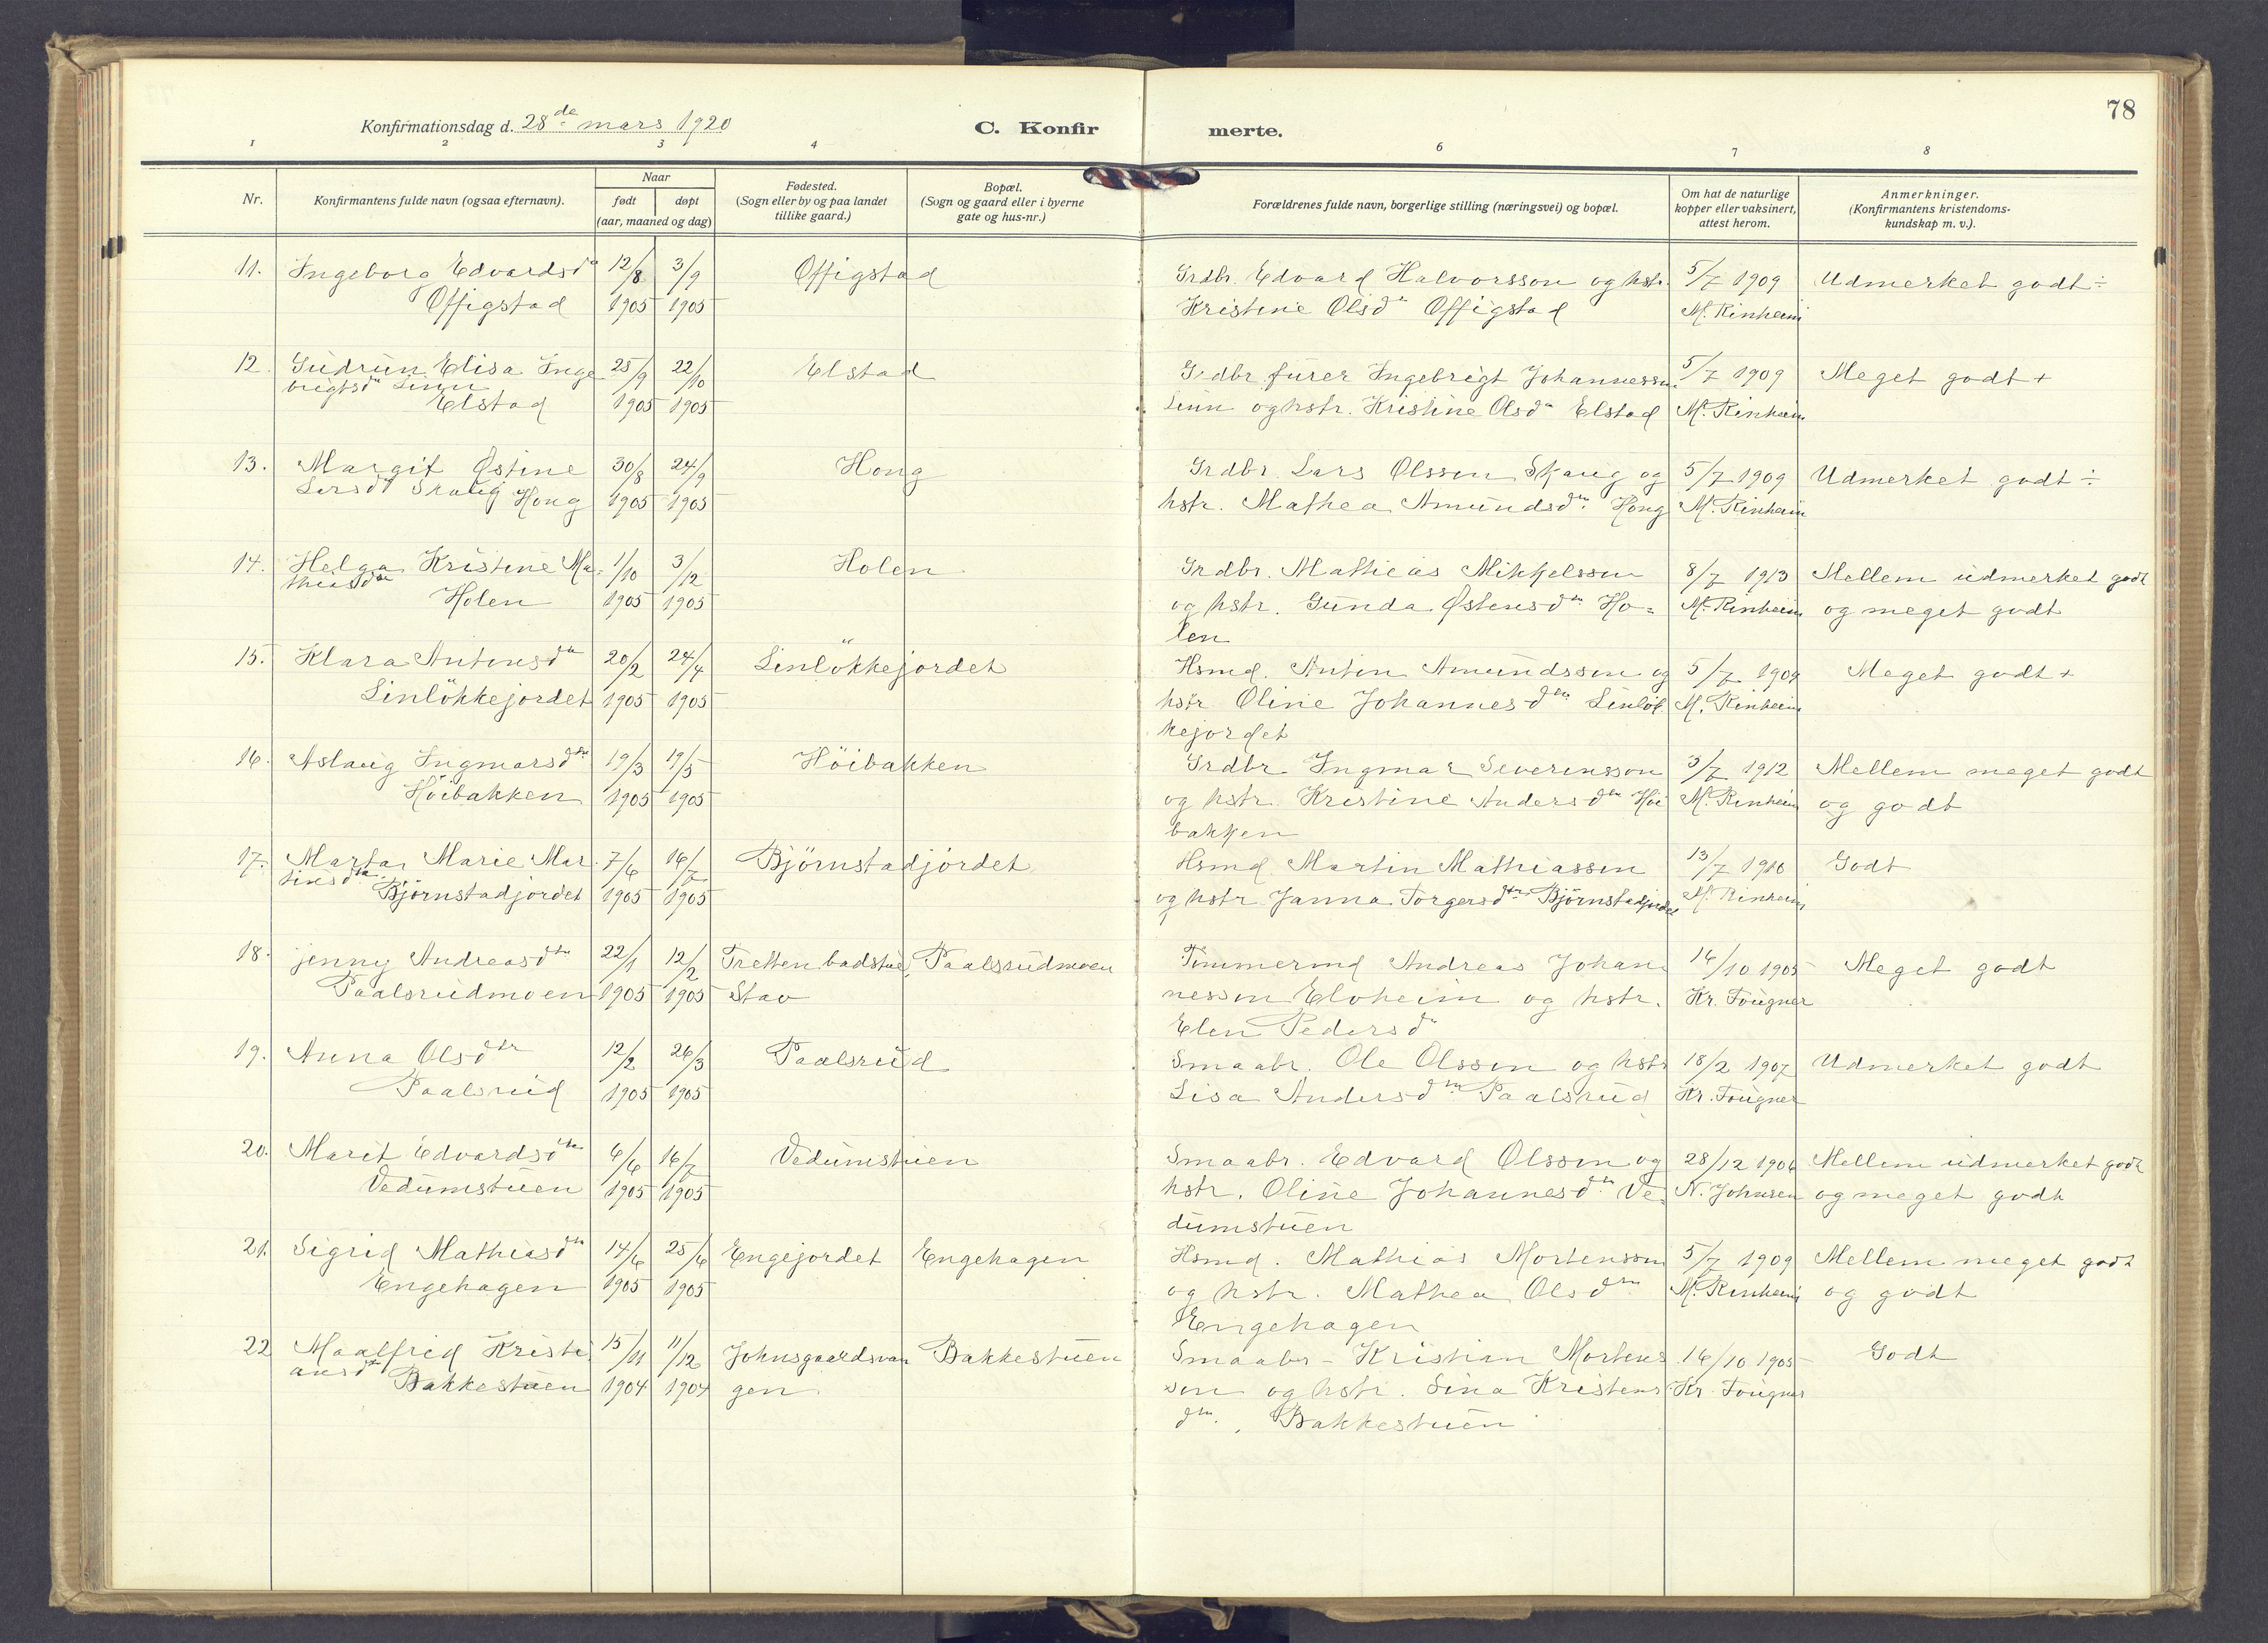 78
Konfirmationsdag d. 28de mars 1920
C. Konfirmerte.
1 2 3 4 6 7 8
Nr.
Konfirmantens fulde navn (ogsaa efternavn).
Naar
født døpt
(aar, maaned og dag)
Fødested.
(Sogn eller by og paa landet
tillike gaard.)
Bopæl.
(Sogn og gaard eller i byerne
gate og hus-nr.)
Forældrenes fulde navn, borgerlige stilling (næringsvei) og bopæl.
Om hat de naturlige
kopper eller vaksinert,
attest herom.
Anmerkninger.
(Konfirmantens kristendoms-
kundskap m. v.).
11. Ingeborg Edvardsdtr 12/8 3/9 Offigstad Grdbr. Edvard Halvorsson og hstr. 5/7 1909 Udmerket godt ÷
Offigstad 1905 1905 Kristine Olsdtr Offigstad M. Rinheim
12. Gudrun Elisa Inge 25/9 22/10 Elstad Grdbr. furer Ingebrigt Johannessn. 5/7 1909 Meget godt +
brigtsdtr Linn
Elstad 1905 1905 Linn og hstr. Kristine Olsdtr Elstad M. Rinheim
13. Margit Østine 30/8 24/9 Hong Grdbr. Lars Olssen Skaug og 5/7 1909 Udmerket godt ÷
Larsdtr Skaug Hong 1905 1905 hstr. Mathea Amundsdtr. Hong M. Rinheim
14. Helga Kristine Ma- 1/10 3/12 Holen Grdbr. Mathias Mikkelsson 8/7 1913 Mellem udmerket godt
thiasdtr
Holen 1905 1905 og hstr. Gunda Østensdtr Ho= M. Rinheim og meget godt
len
15. Klara Antonsdtr 20/2 24/4 Linløkkejordet Hsmd. Anton Amundsson og 5/7 1909 Meget godt +
Linløkkejordet 1905 1905 hstr Oline Johannesdtr Linløk M. Rinheim
kejordet
16. Aslaug Ingmarsdtr 19/3 19/5 Höibakken Grdbr. Ingmar Severinsson 3/7 1912 Mellem meget godt
Höibakken 1905 1905 og hstr. Kristine Andersdtr Höi M. Rinheim og godt
bakken
17. Marta Marie Mar 7/6 16/7 Björnstadjordet Hsmd Martin Mathiassen 13/7 1910 Godt
tinsdtr
Björnstadjordet 1905 1905 og hstr Janna Torgersdtr Björnstadjordet M. Rinheim
18. Jenny Andreasdtr 22/1 12/2 Tretten badstue, Paalsrudmoen Tømmermd Andreas Johan 14/10 1905 Meget godt
Paalsrudmoen 1905 1905 Stav nessen Eloheim og hstr. Kr. Fougner
Elen Pedersdtr
19. Anna Olsdtr 12/2 26/3 Paalsrud Smaabr. Ole Olsson og hstr 18/2 1907 Udmerket godt
Paalsrud 1905 1905 Lisa Andersdtr Paalsrud Kr. Fougner
20. Marit Edvardsdtr 6/6 16/7 Vedumstuen Smaabr. Edvard Olsson og 28/12 1906 Mellem udmerket godt
Vedumstuen 1905 1905 hstr. Oline Johannesdtr. Ve= N. Johnsen og meget godt
dumstuen
21. Sigrid Mathiasdtr 14/6 25/6 Engejordet Engehagen Hsmd. Mathias Mortensson 5/7 1909 Mellem meget godt
Engehagen 1905 1905 og hstr. Mathea Olsdtr M. Rinheim og godt
Engehagen
22 Maalfrid Kristi 15/11 11/12 Johnsgaardsvan Bakkestuen Smaabr- Kristian Mortens 16/10 1905 Godt
ansdtr
Bakkestuen 1904 1904 gen son og hstr. Sina Kristens Kr. Fougner
dtr., Bakkestuen